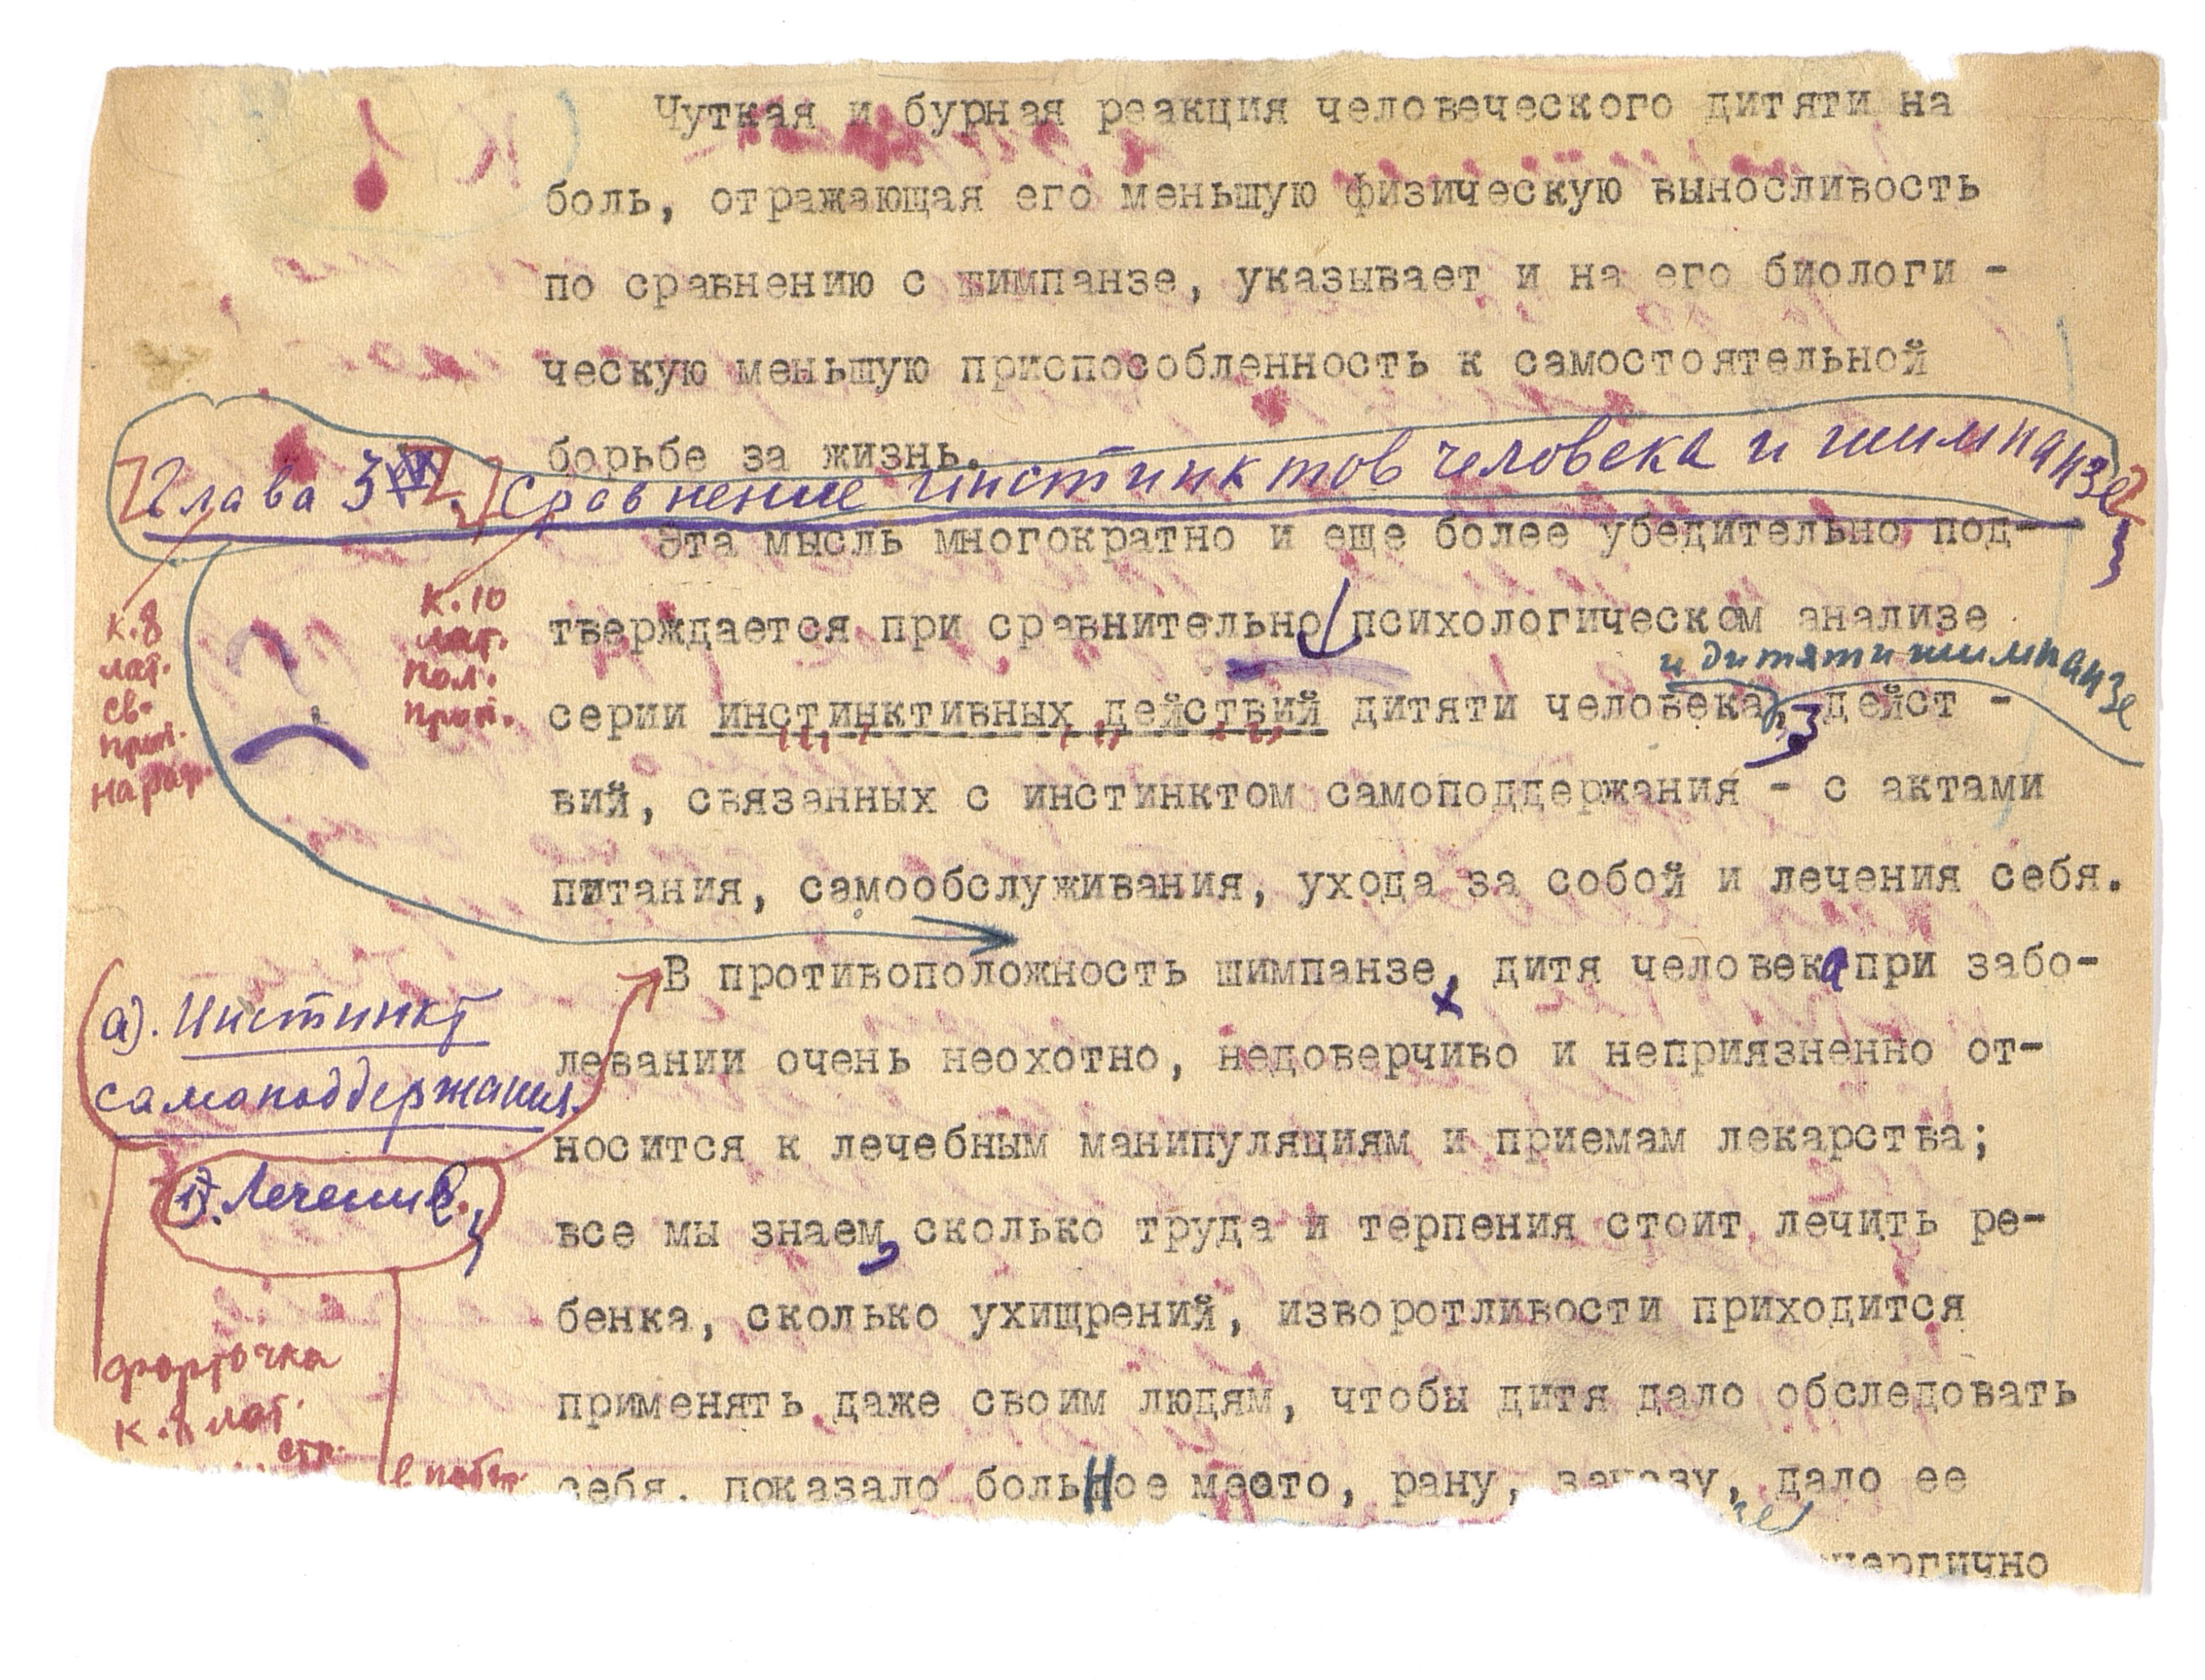 Чуткая и бурная реакция человеческого дитяти на
боль, отражающая его меньшую физическую выносливость
по сравнению с шимпанзе, указывает и на его биологи -
ческую меньшую приспособленность к самостоятельной
борьбе за жизнь.
Глава 3 . Сравнение инстинктов человека и шимпанзе
Эта мысль многократно и еще более убедительно под-
тверждается при сравнительно психологическом анализе
и дитяти шимпанзе
серии инстинктивных действий дитяти человека, дейст -
вий, связанных с инстинктом самоподдержания - с актами
питания, самообслуживания, ухода за собой и лечения себя.
к.8
лат.
св.
прит.
к.10
лат.
пол.
прит.
В противоположность шимпанзе, дитя человека при забо-
левании очень неохотно, недоверчиво и неприязненно от-
носится к лечебным манипуляциям и приемам лекарства;
все мы знаем, сколько труда и терпения стоит лечить ре-
бенка, сколько ухищрений, изворотливости приходится
применять даже своим людям, чтобы дитя дало обследовать
себя, показало больное место, рану, занозу, дало ее
энергично
а). Инстинкт
самоподдержания.
1). Лечение.
форточка
к.8 лат.
стр.
в набор